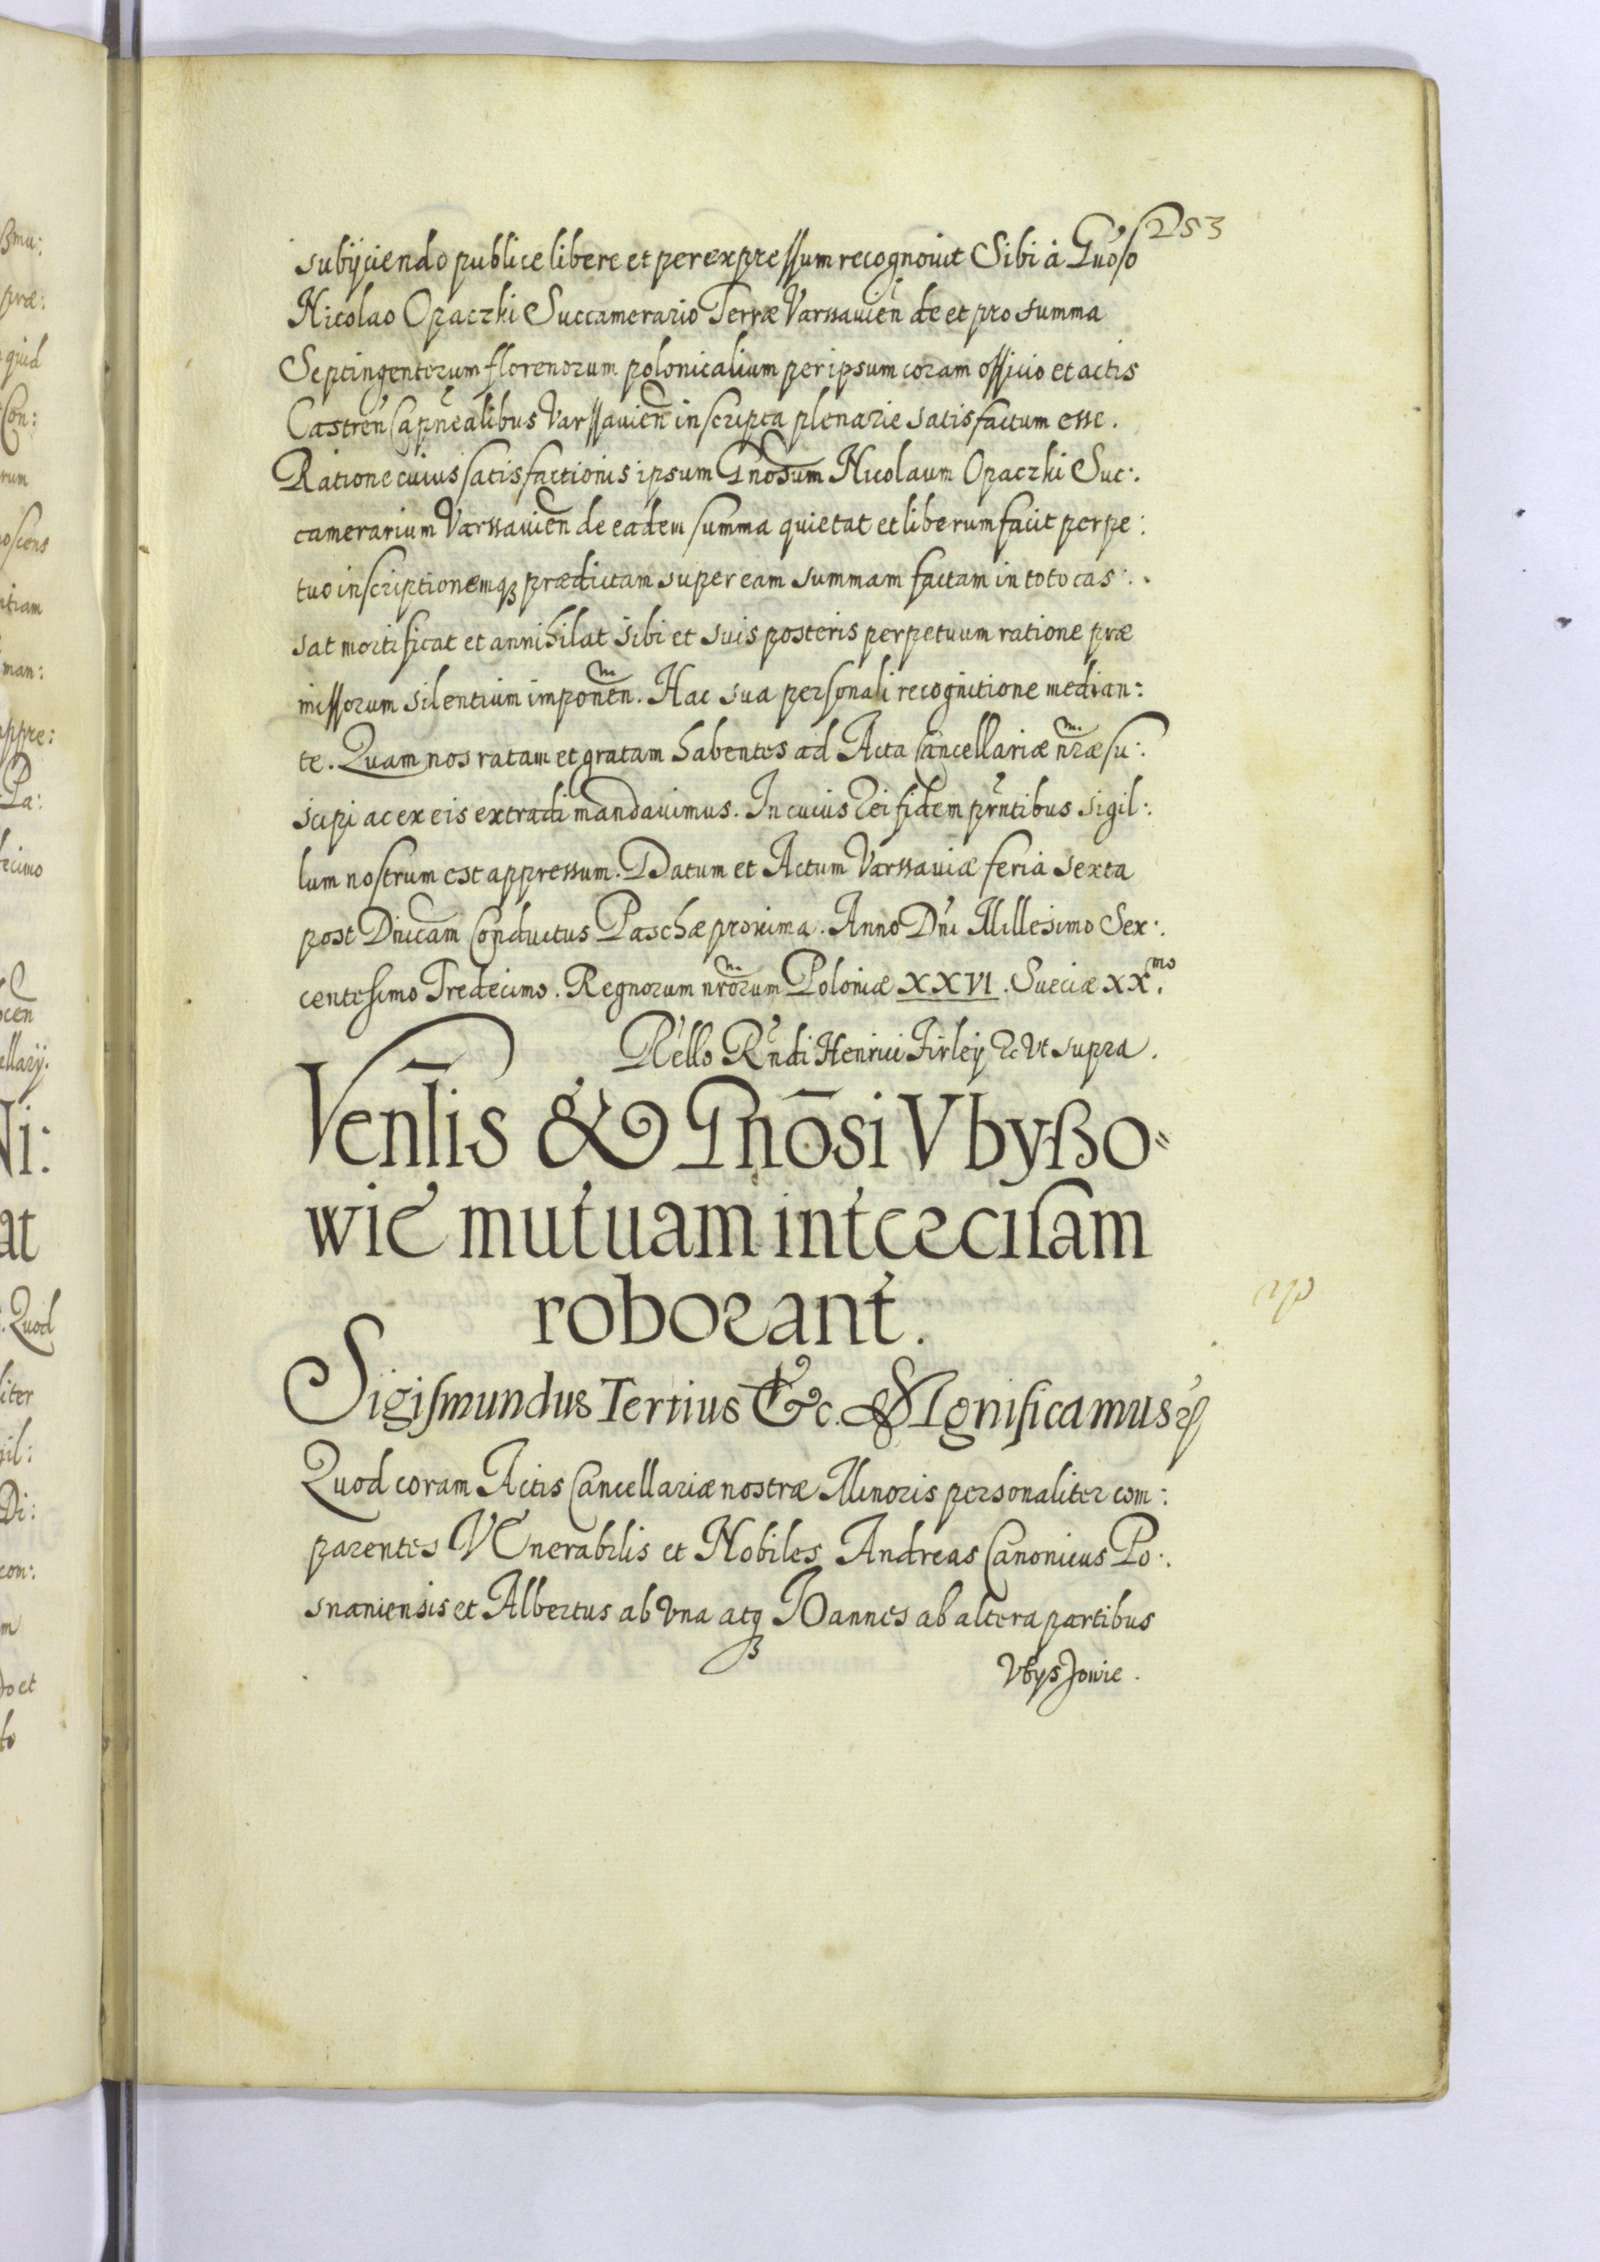 253
subijciendo publice libere et per expressum recognouit Sibi à Gnoso
Nicolao Opaczki Succamerario Terræ Varssauien̄ de et pro summa
Septingentorum florenorum polonicalium per ipsum coram officio et actis
Castren̄ Capnealibus Varssauien̄ inscripta plenarie satisfactum esse.
Ratione cuius satisfactionis ipsum Gnosum Nicolaum Opaczki Suc:
camerarium Varssauien̄ de eadem summa quietat et liberum facit perpe:
tuo inscriptionemqꝫ prædictam super eam summam factam in toto cas:
sat mortificat et annihilat sibi et suis posteris perpetuum ratione præ
missorum silentium imponen̄. Hac sua personali recognitione median:
te. Quam nos ratam et gratam habentes ad Acta Cancellariæ nr̄æ su:
scipi ac ex eis extradi mandauimus. In cuius rei fidem prn̄tibus sigil:
lum nostrum est appressum. Datum et Actum Varssauiæ feria sexta
post Dnicam Conductus Paschæ proxima. Anno Dn̄i Millesimo Sex:
centesimo Tredecimo. Regnorum nrōrum Poloniæ XXVI. Sueciæ XX.mo
R'ello R'ndi Henrici Firley &c Vt supra.
Ven̄lis & Gnōsi Vbyßo=
wie mutuam intercisam
roborant.
Sigismundus Tertius &c. SIgnificamus &c
Quod coram Actis Cancellariæ nostræ Minoris personaliter com:
parentes VEnerabilis et Nobiles Andreas Canonicus Po:
snaniensis et Albertus ab vna atqꝫ IOannes ab altera partibus
Vbysowie.
ßmu:
præ:
quid
Con:
rum
noscens
ntiam
man:
appre:
Pa:
ecimo
cen̄
ellarij.
Ni:
at
Quod
liter
gil:
Di:
com:
m
do et